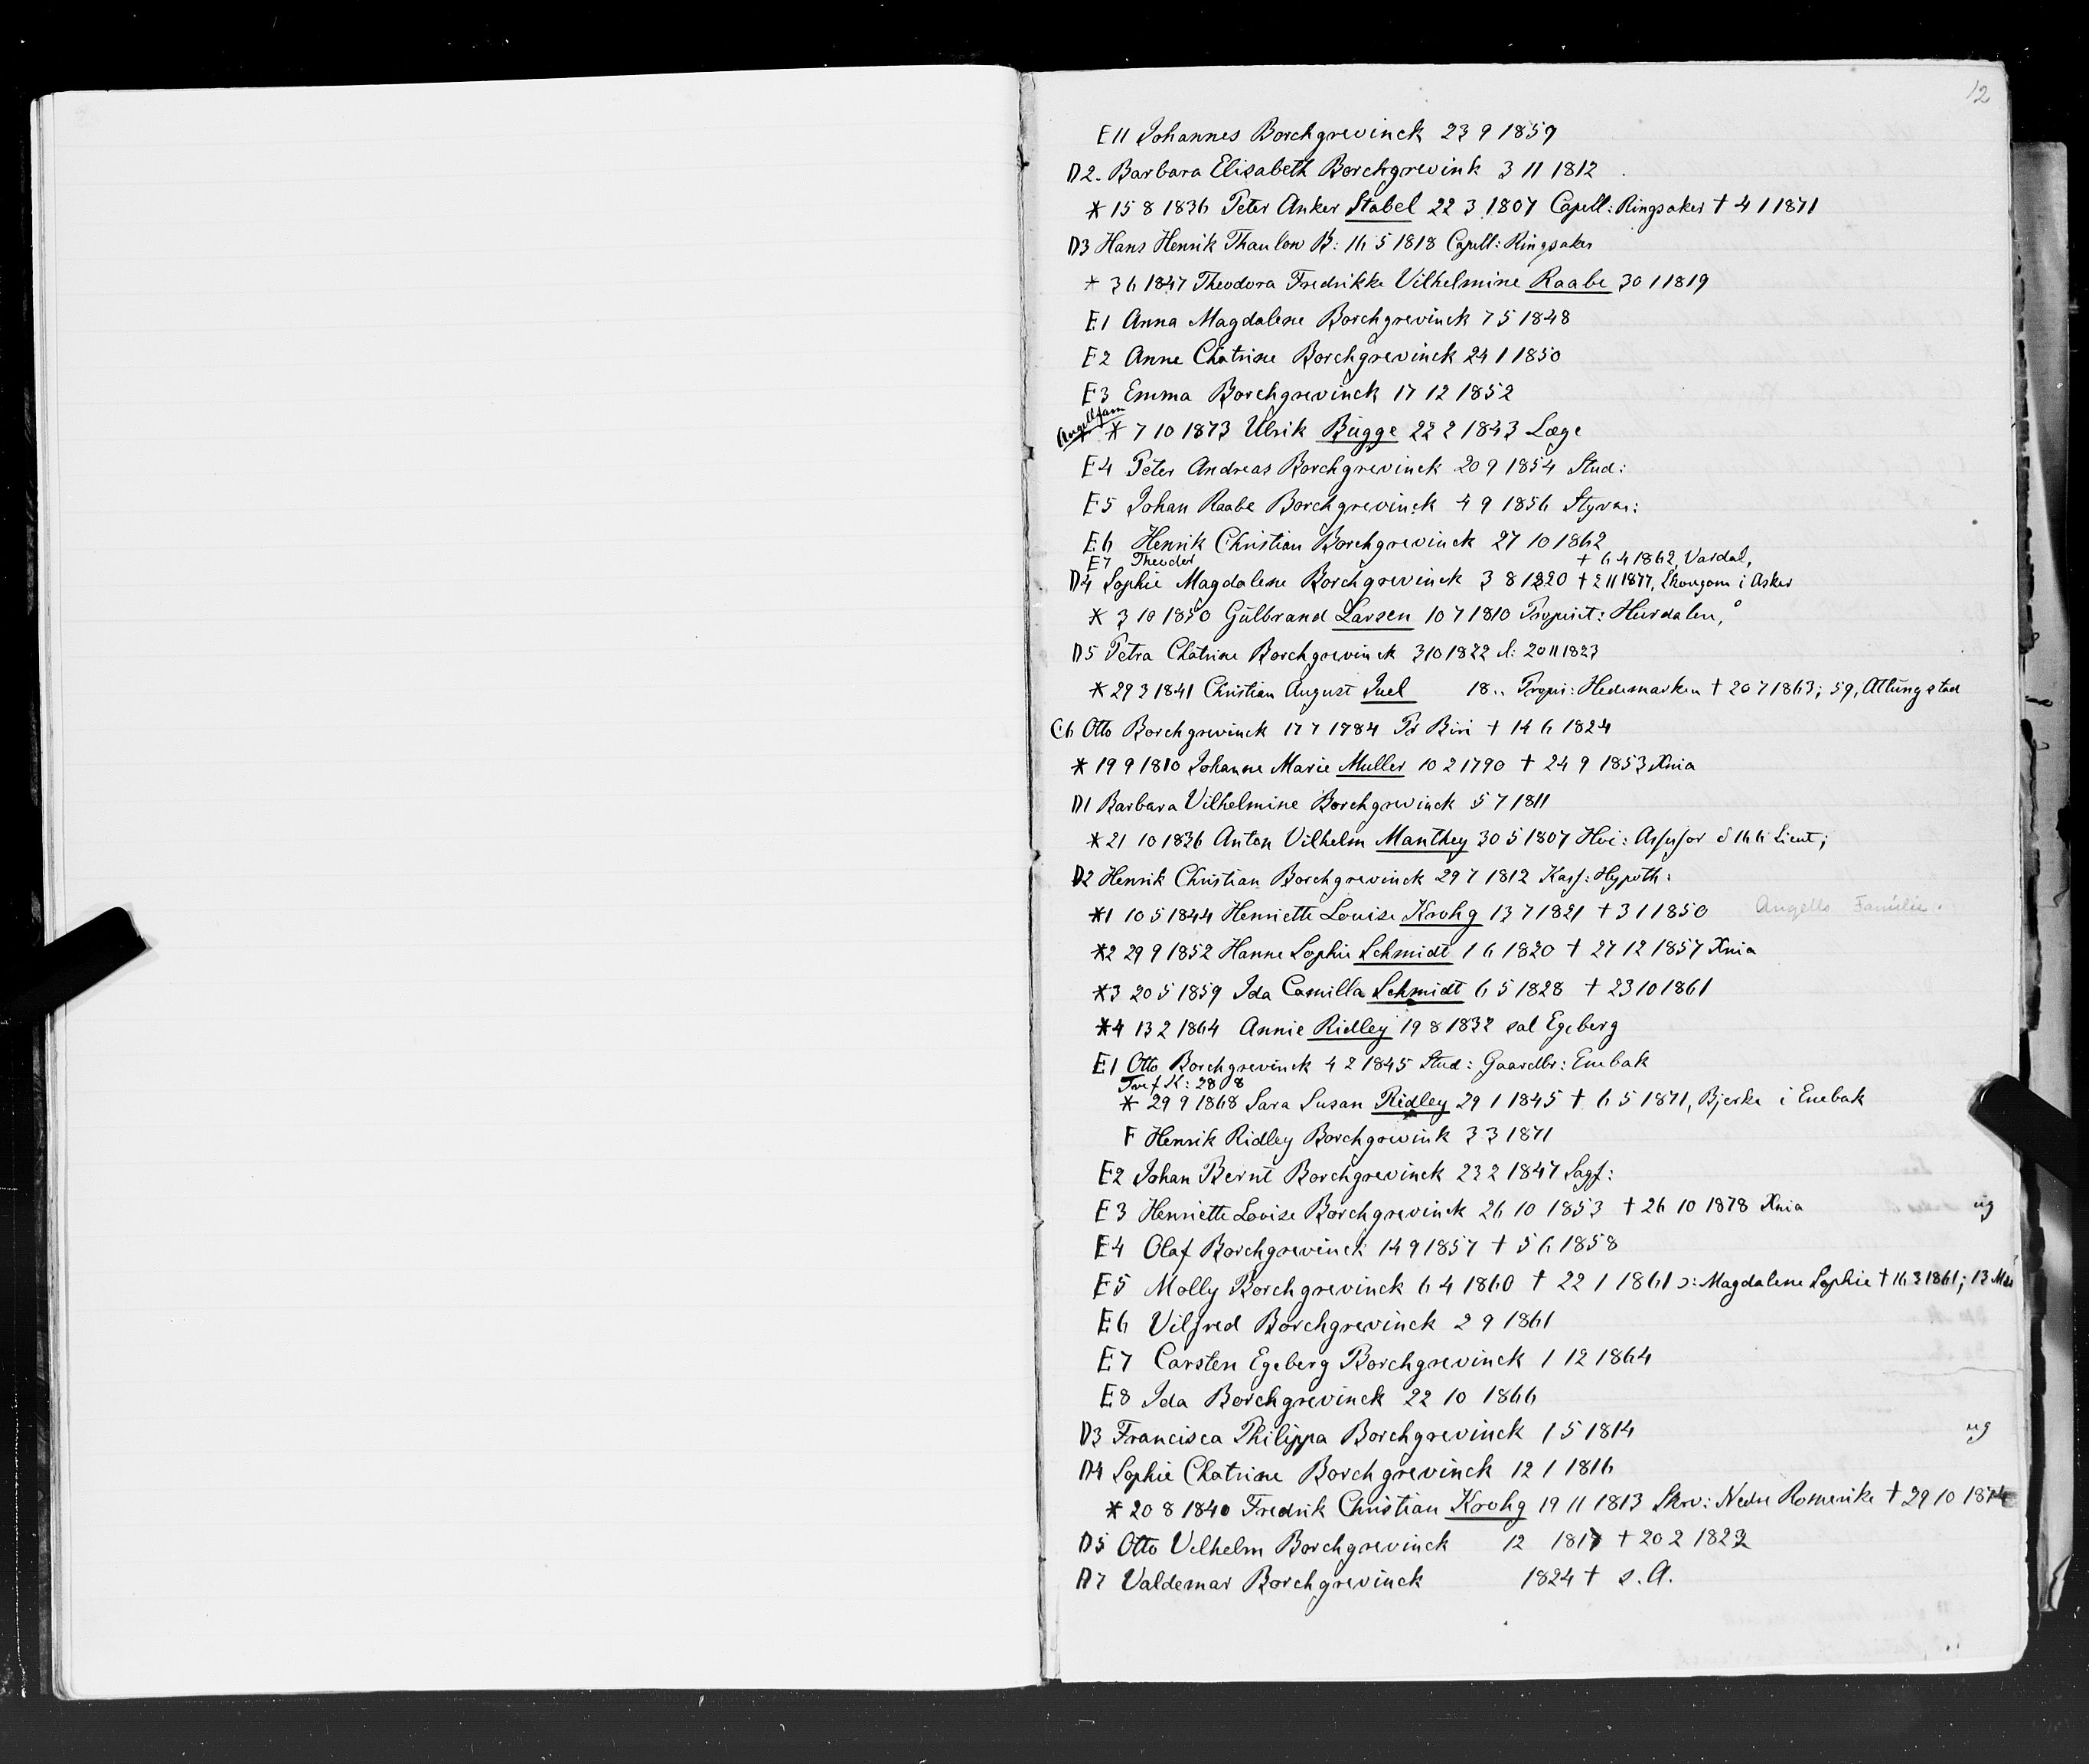 12
E11 Johannes Borchgrevinck 23 9 1859
D2. Barbara Elisabeth Borchgrevink 3 11 1812
* 15 8 1836 Peter Anker Stabel 22 3 1807 Capell: Ringsaker † 4 1 1871
D3 Hans Henrik Thaulow B: 16 5 1818 Capell: Ringsaker
* 3 6 1847 Theodora Fredrikke Vilhelmine Raabe 30 1 1819
E1 Anna Magdalene Borchgrevinck 7 5 1848
E2 Anne Chatrine Borchgrevinck 24 1 1850
E3 Emma Borchgrevinck 17 12 1852
Angellfam
* 7 10 1873 Ulrik Bugge 22 2 1843 Læge
E4 Peter Andreas Borchgrevinck 20 9 1854 Stud:
E5 Johan Raabe Borchgrevinck 4 9 1856 Styrm:
E6 Henrik Christian Borchgrevinck 27 10 1862
E7 Theodor † 6 4 1862, Vardal,
D4 Sophie Magdalene Borchgrevinck 3 8 1820 † 2 11 1877, Skougom i Asker
* 3 10 1850 Gulbrand Larsen 10 7 1810 Propriet: Hurdalen,
D5 Petra Chatrine Borchgrevinck 3 10 1822 d: 20 11 1823
* 29 3 1841 Christian August Juel 18.. Propri: Hedemarken † 20 7 1863; 59, Attungstad
C6 Otto Borchgrevinck 17 7 1784 Pr Biri † 14 6 1824
* 19 9 1810 Johanne Marie Muller 10 2 1790 † 24 9 1853 Xnia
D1 Barbara Vilhelmine Borchgrevinck 5 7 1811
* 21 10 1836 Anton Vilhelm Manthey 30 5 1807 Hoi: Assessor d 16 6 Lieut;
D2 Henrik Christian Borchgrevinck 29 7 1812 Kass: Hypoth:
*1 10 5 1844 Henriette Louise Krohg 13 7 1821 † 3 1 1850 Angells Familie.
*2 29 9 1852 Hanne Sophie Schmidt 1 6 1820 † 27 12 1857 Xnia
*3 20 5 1859 Ida Camilla Schmidt 6 5 1828 † 23 10 1861
*4 13 2 1864 Annie Ridley 19 8 1832 sal Egeberg
E1 Otto Borchgrevinck 4 2 1845 Stud: Gaardbr: Enebak
28 8
* 29 9 1868 Sara Susan Ridley 29 1 1845 † 6 5 1871, Bjerke i Enebak
F Henrik Ridley Borchgrevink 3 3 1871
E2 Johan Bernt Borchgrevinck 23 2 1847 Sagf:
E3 Henriette Lovise Borchgrevink 26 10 1853 † 26 10 1878 Xnia ug
E4 Olaf Borchgrevinck 14 9 1857 † 5 6 1858
E5 Molly Borchgrevinck 6 4 1860 † 22 1 1861 ɔ: Magdalene Sophie † 16 3 1861; 13
E6 Vilfred Borchgrevinck 2 9 1861
E7 Carsten Egeberg Borchgrevinck 1 12 1864
E8 Ida Borchgrevinck 22 10 1866
D3 Francisca Philippa Borchgrevinck 1 5 1814 ug
D4 Sophie Chatrine Borchgrevinck 12 1 1816
* 20 8 1840 Fredrik Christian Krohg 19 11 1813 Skrv: Nedre Romerike † 29 10 1874
D5 Otto Vilhelm Borchgrevinck 12 1817 † 20 2 1823
D7 Valdemar Borchgrevinck 1824 † s.A.